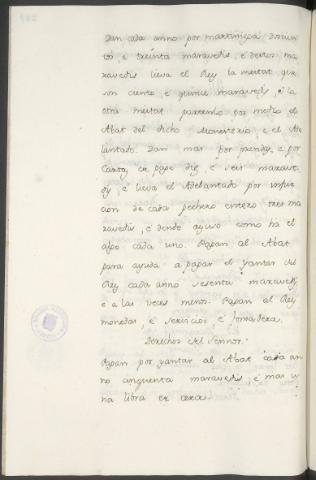 Dan cada anno por martiniega docien
tos e treinta maravedis, e destos ma
ravedis lieva el Rey la meitat que
son ciento, e quince maravedis, e la
otra meitat partenlo por medio el
Abat del dicho Monesterio e el Ade
lantado. Dan mas por
e seis marave
dis, e lieva el Adelantado por infur
cion de cada pechero entero tres ma
ravedis, e dende ayuso como ha el
algo cada uno. Pagan al Abat
para ayuda a pagar el yantar del
Rey cada anno sesenta maravedis
e a las veces menos. Pagan al Rey
monedas, e servicios, e fonsadera.
Derechos del Sennor.
Pagan por yantar al Abat cada an
no cinquenta maravedis e mas u
na libra de cera.